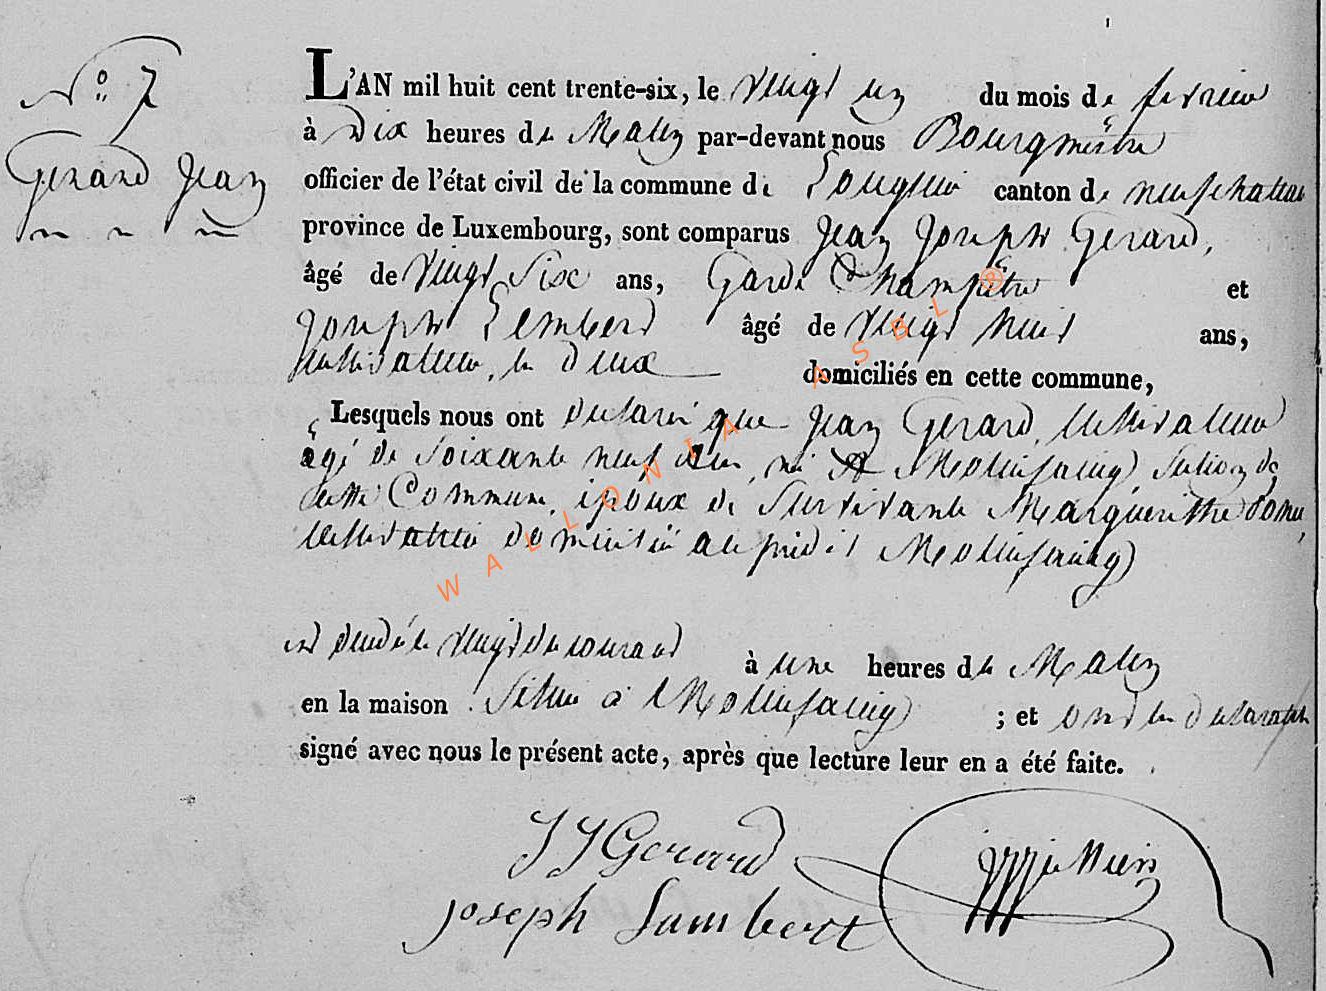 N° 7
Gerard Jean
L'AN mil huit cent trente-six, le vingt un du mois de fevrier
à Dix heures de Matin par-devant nous Bourgmestre
officier de l'état civil de la commune de Longlier canton de neufchateau
province de Luxembourg, sont comparus Jean Joseph Gerard,
âgé de Vingt Six ans, Garde Champêtre et
Joseph Lembert âgé de vingt neuf ans,
cultivateur, les deux domiciliés en cette commune,
Lesquels nous ont declaré que Jean Gerard, cultivateur
agé de soixante neuf ans, né A Mollinfaing, section de
cette Commune, époux de survivante Marguerithe
cultivatrice domiciliée au prédit Mollinfaing
est decedé le vingt du courant à une heures du Matin
en la maison située à Mollinfaing ; et ont les declarants
signé avec nous le présent acte, après que lecture leur en a été faite.
JJ Gerard
Joseph Lambert
WALLONIA ASBL ®